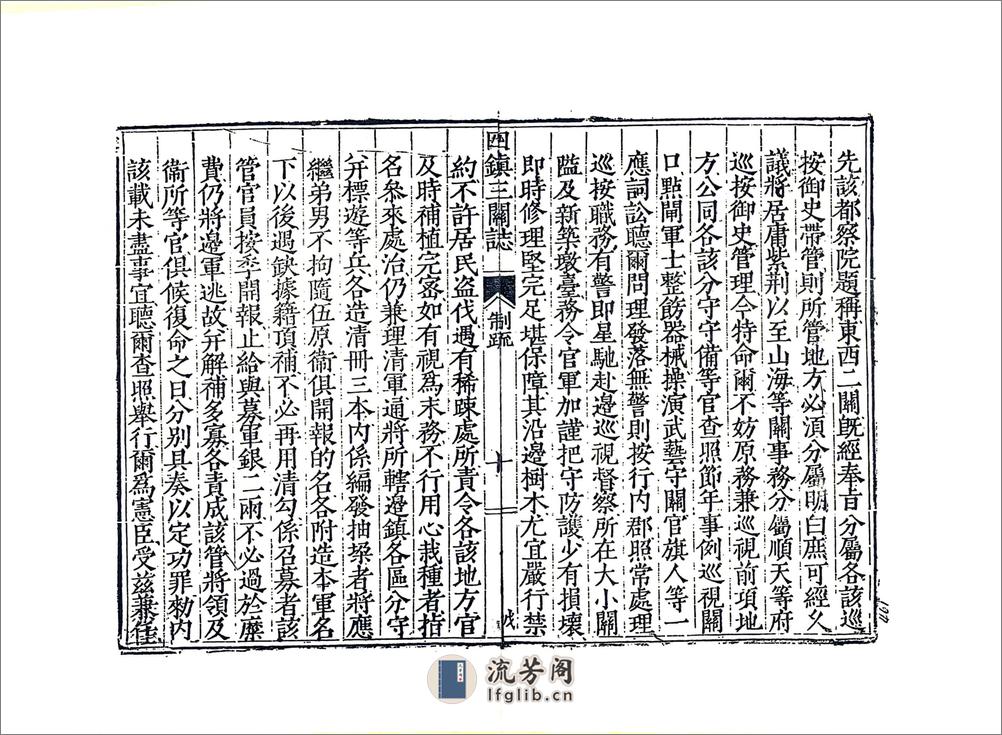 先該都察院題稱東西二關旣經奉旨分屬各該巡
按御史帶管則所管地方必湏分屬明白庶可經久
議將居庸紫荆以至山海等關事務分屬順天等府
巡按御史管理今特命爾不妨原務兼巡視前項地
方公同各該分守守備等官查照節年事例巡視關
口點閘軍士整飭器械操演武藝守關官旗人等一
應詞訟聽爾問理發落無警則按行内郡照常處理
巡按職務有警即星馳赴邊巡視督察所在大小關
隘及新築墩臺務令官軍加謹把守防護少有損壞
即時修理堅完足堪保障其沿邊樹木尤宜嚴行禁
四鎮三關誌
制疏
十
約不許居民盜伐遇有稀疎處所責令各該地方官
及時補植完宻如有視爲末務不行用心栽種者指
名叅來處治仍兼理清軍通將所轄邊鎮各區分守
并標遊等兵各造清冊三本内係編發抽垜者將應
繼弟男不拘隨伍原衞俱開報的名各附造本軍名
下以後遇缺據籍頂補不必再用清勾係召募者該
管官員按季開報止給與募軍銀二兩不必過於糜
費仍將邊軍逃故并解補多寡各責成該管將領及
衞所等官俱候復命之日分别具奏以定功罪勑内
該載未盡事宜聽爾查照舉行爾爲憲臣受兹兼任
流芳阁
lfglib.cn